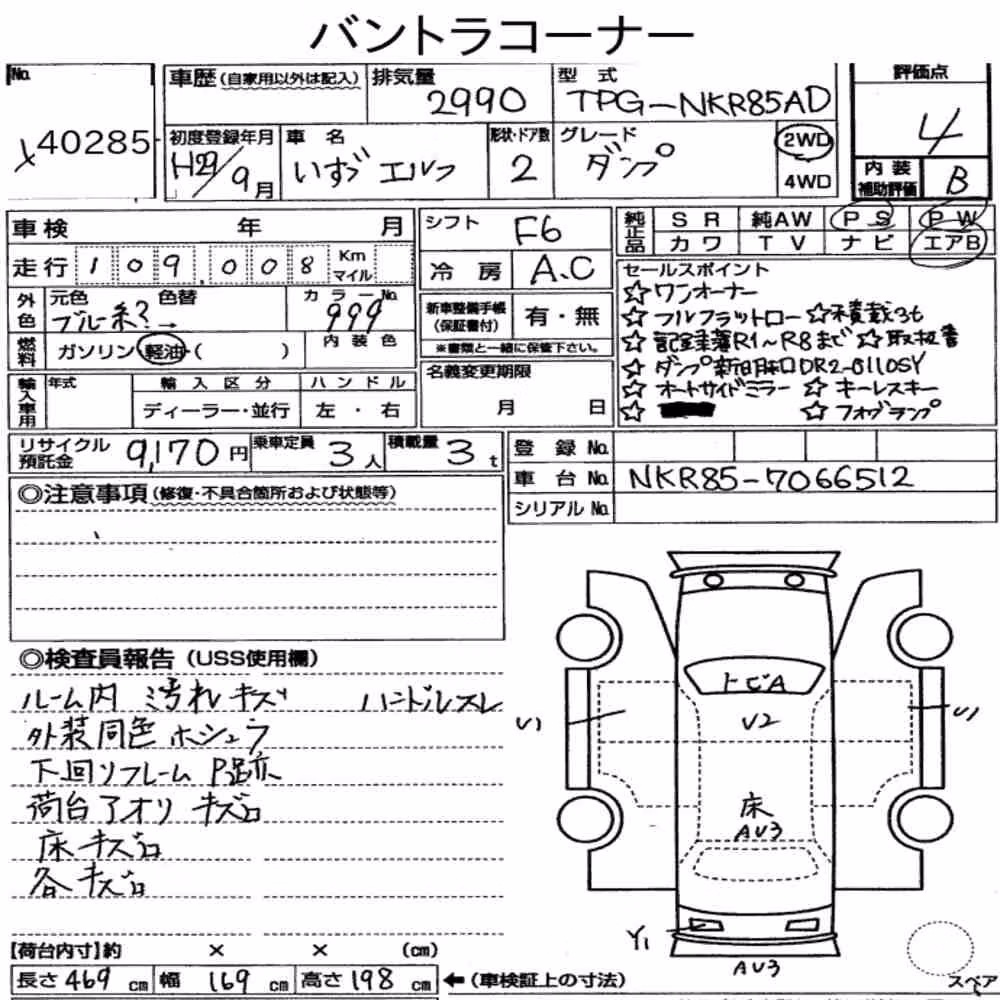 バントラコーナー
No. 車歴 (自家用以外は記入) 排気量 2990 型式 TPG-NKR85AD 評価点 4
40285
初度登録年月 H29/9月 車名 いすゞ エルフ 形状・ドア数 2 グレード ダンプ 2WD 4WD 内装補助評価 B
車検 年 月 シフト F6 純正品 SR 純AW PS PW
走行 109,008 Km マイル 冷房 A.C カワ TV ナビ エアB
外色 元色 ブルー系? 色替 → カラーNo. 999 内装色
新車整備手帳 (保証書付) 有・無
※書類と一緒に保管下さい。
燃料 ガソリン 軽油・( )
名義変更期限 月 日
輸入車用 年式 輸入区分 ディーラー・並行 ハンドル 左・右
セールスポイント
☆ワンオーナー
☆フルフラットロー ☆積載3t
☆記録簿R1~R8まで ☆取扱書
☆ダンプ新明和DR2-0110SY
☆オートサイドミラー ☆キーレスキー
☆ ☆フォグランプ
リサイクル預託金 9,170円 乗車定員 3人 積載量 3t
登録No.
車台No. NKR85-7066512
シリアルNo.
◎注意事項 (修復・不具合箇所および状態等)
◎検査員報告 (USS使用欄)
ルーム内 汚れ キズ ハンドルスレ
外装同色ホシュウ
下回リフレーム P跡
荷台アオリ キズロ
床キズロ
各キズロ
トビA
U1 U2 U1
床
AU3
Y1
AU3
スペア
【荷台内寸】約 × × (cm)
長さ 469 cm 幅 169 cm 高さ 198 cm ←(車検証上の寸法)